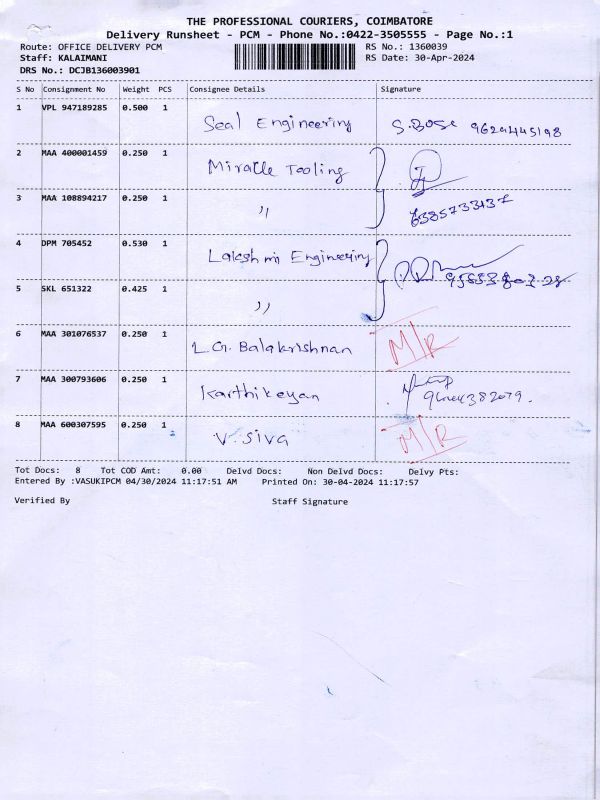 THE PROFESSIONAL COURIERS, COIMBATORE
Delivery Runsheet - PCM - Phone No.:0422-3505555 - Page No.:1
Route: OFFICE DELIVERY PCM RS No.: 1360039
Staff: KALAIMANI RS Date: 30-Apr-2024
DRS No.: DCJB136003901
S No Consignment No Weight PCS Consignee Details Signature
1 VPL 947189285 0.500 1 Seal Engineering S.BOSE 9629445198
2 MAA 400001459 0.250 1 Miracle Tooling
3 MAA 108894217 0.250 1 " 6385733137
4 DPM 705452 0.530 1 Lakshmi Engineering
5 SKL 651322 0.425 1 "
6 MAA 301076537 0.250 1 L.G. Balakrishnan M/R
7 MAA 300793606 0.250 1 Karthikeyan
8 MAA 600307595 0.250 1 V. SIVA M/R
Tot Docs: 8 Tot COD Amt: 0.00 Delvd Docs: Non Delvd Docs: Delvy Pts:
Entered By :VASUKIPCM 04/30/2024 11:17:51 AM Printed On: 30-04-2024 11:17:57
Verified By Staff Signature